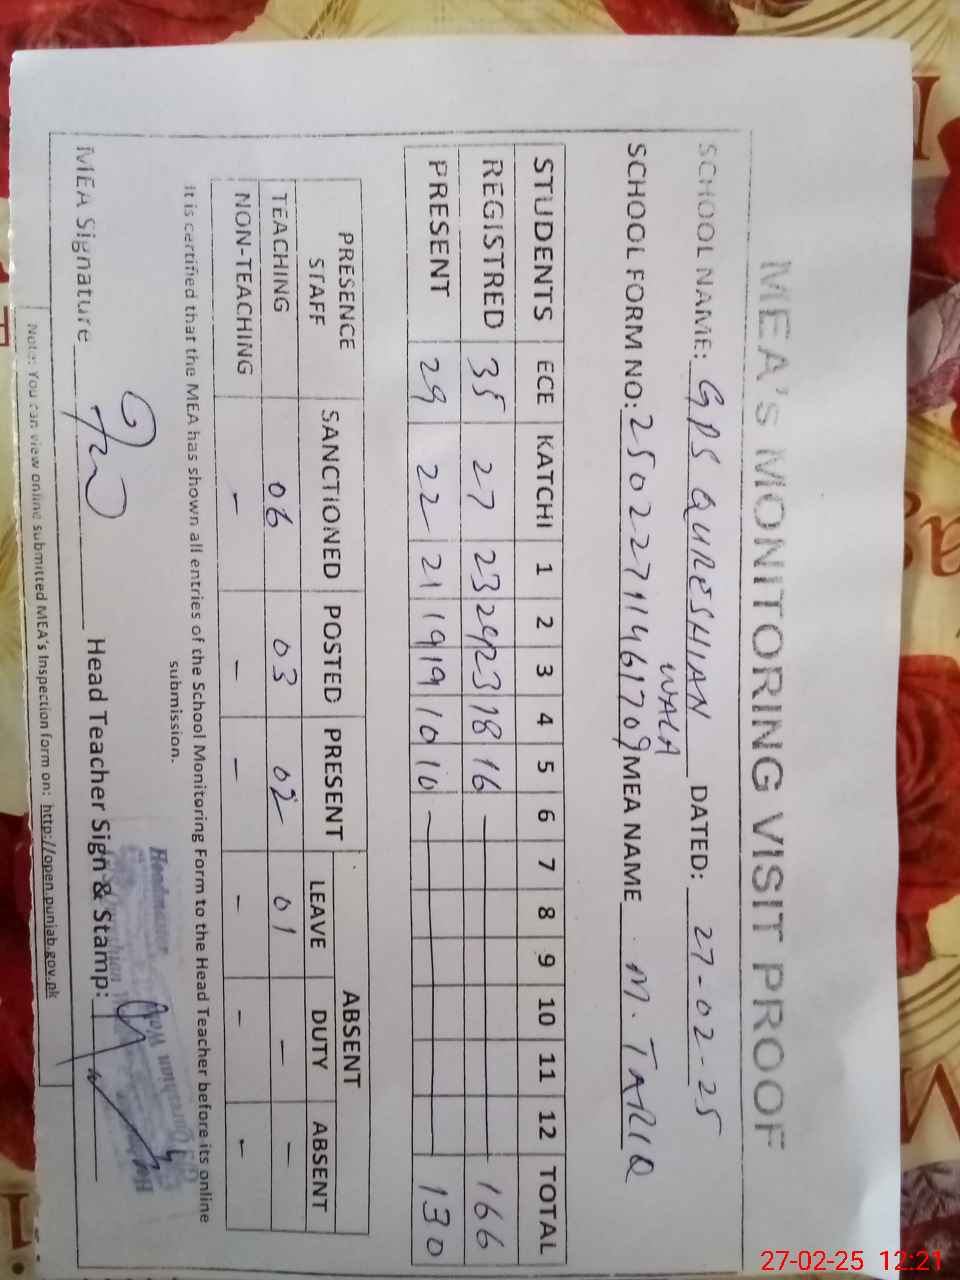 MEA'S MONITORING VISIT PROOF
SCHOOL NAME: GPS QURESHIAN WALA DATED: 27-02-25
SCHOOL FORM NO: 25022711461709 MEA NAME M. TARIQ
STUDENTS ECE KATCHI 1 2 3 4 5 6 7 8 9 10 11 12 TOTAL
REGISTRED 35 27 23 24 23 18 16 — 166
PRESENT 29 22 21 19 19 10 10 — 130
PRESENCE STAFF SANCTIONED POSTED PRESENT ABSENT
LEAVE DUTY ABSENT
TEACHING 06 03 02 01 - -
NON-TEACHING - - - - - -
It is certified that the MEA has shown all entries of the School Monitoring Form to the Head Teacher before its online
submission.
MEA Signature Head Teacher Sign & Stamp:
Headmaster
Note: You can view online submitted MEA's Inspection form on: http://open.punjab.gov.pk
27-02-25 12:21